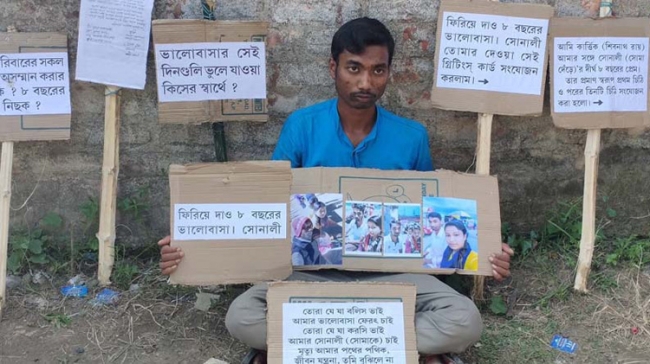 রিবারের সকল
অসম্মান করার
ক ? ৮ বছরের
নিছক ?
ভালোবাসার সেই
দিনগুলি ভুলে যাওয়া
কিসের স্বার্থে ?
ফিরিয়ে দাও ৮ বছরের
ভালোবাসা। সোনালী
তোমার দেওয়া সেই
গ্রিটিংস্ কার্ড সংযোজন
করলাম।
আমি কার্ত্তিক (শিবনাথ রায়)
আমার সঙ্গে সোনালী (সোমা
দেঁড়ে)'র দীর্ঘ ৮ বছরের প্রেম।
তার প্রমাণ স্বরূপ প্রথম চিঠি
ও পরের তিনটি চিঠি সংযোগ
করা হলো।
ফিরিয়ে দাও ৮ বছরের
ভালোবাসা। সোনালী
তোরা যে যা বলিস ভাই
আমার ভালোবাসা ফেরৎ চাই
তোরা যে যা করসি ভাই
আমার সোনালী (সোমাকে) চাই
মৃত্যু আমার পথের পথিক,
জীবন যন্ত্রনা, তুমি বুঝিলে